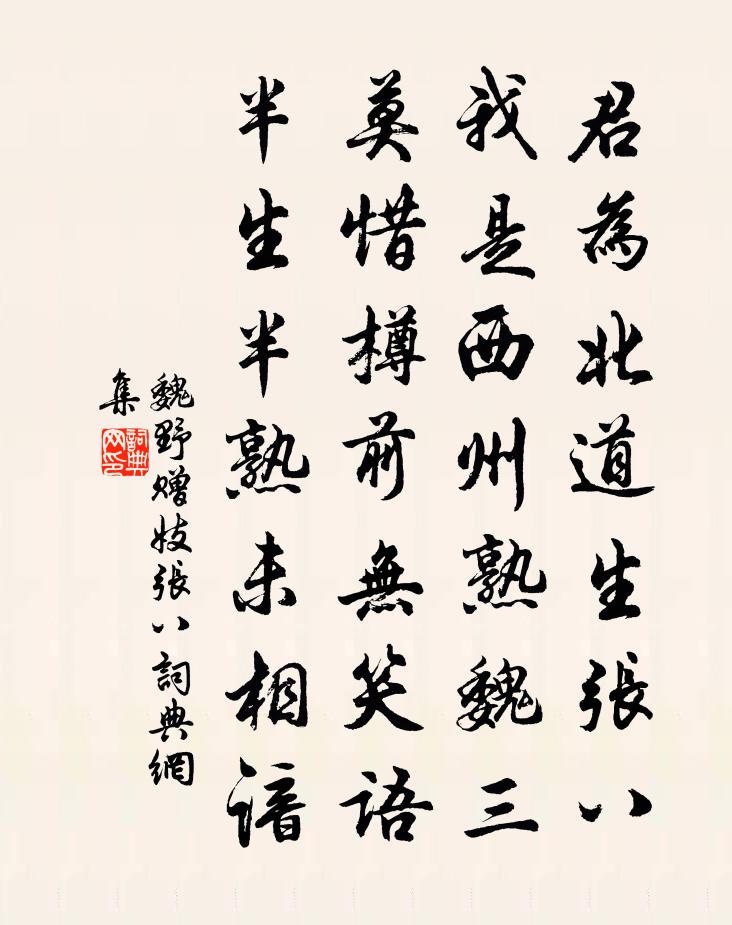 君為北道生張八
我是西州熟魏三
莫惜樽前無笑语
半生半熟未相谙
魏野赠妓張八詞典網
集
詞典
网印